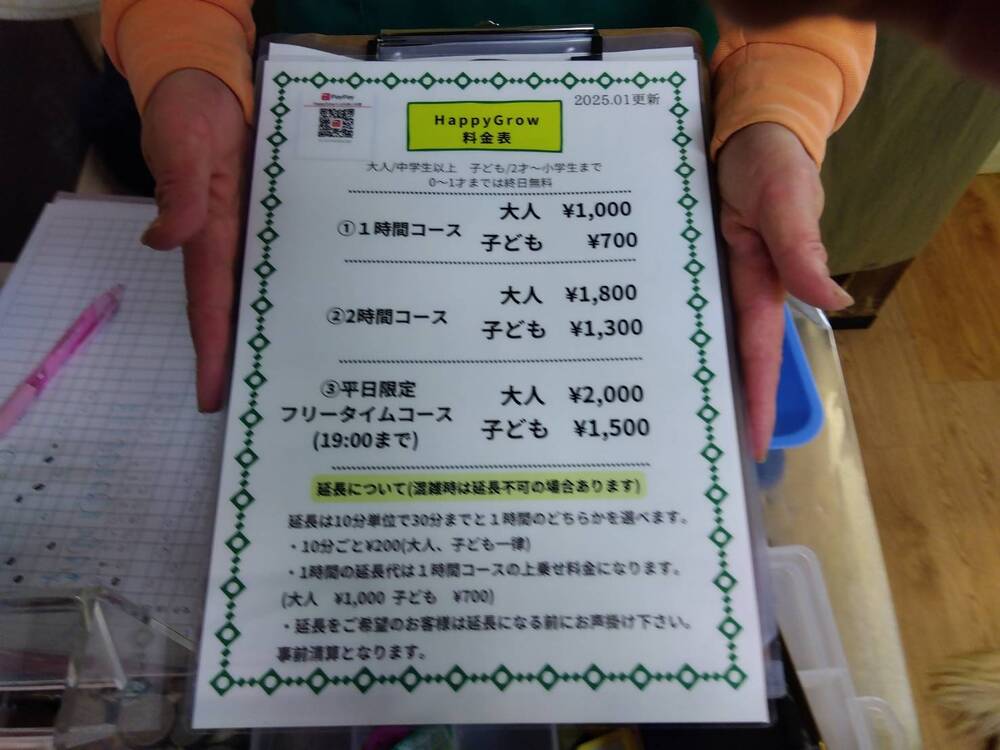 PayPay
2025.01更新
HappyGrow
料金表
大人/中学生以上　子ども/2才～小学生まで
0～1才までは終日無料
①１時間コース
大人　¥1,000
子ども　¥700
②2時間コース
大人　¥1,800
子ども　¥1,300
③平日限定
フリータイムコース
(19:00まで)
大人　¥2,000
子ども　¥1,500
延長について(混雑時は延長不可の場合あります)
延長は10分単位で30分までと１時間のどちらかを選べます。
・10分ごと¥200(大人、子ども一律)
・1時間の延長代は１時間コースの上乗せ料金になります。
(大人　¥1,000 子ども　¥700)
・延長をご希望のお客様は延長になる前にお声掛け下さい。
事前清算となります。